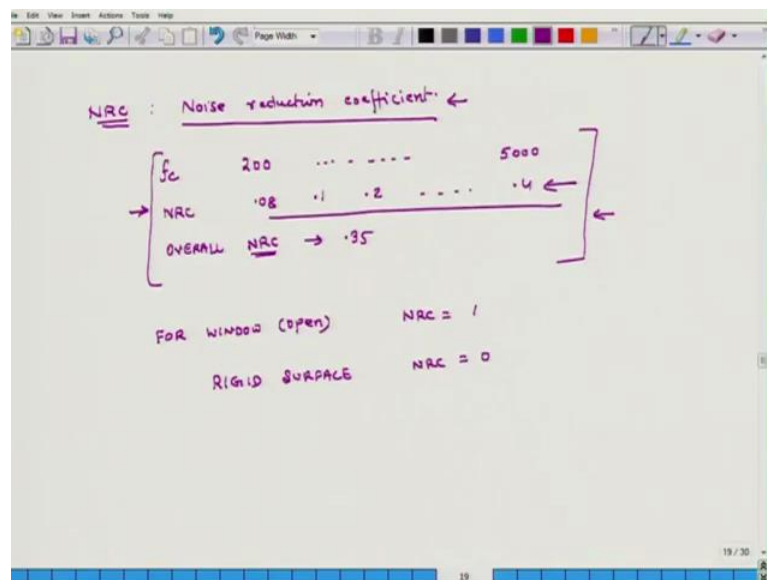 le Edit View Insert Actions Tools Help
Page Width B I
NRC : Noise reduction coefficient. ←
fc 200 ... - ---- 5000
→ NRC .08 .1 .2 - ... .4 ←
OVERALL NRC → .35 ←
FOR WINDOW (open) NRC = 1
RIGID SURFACE NRC = 0
19 / 30
19